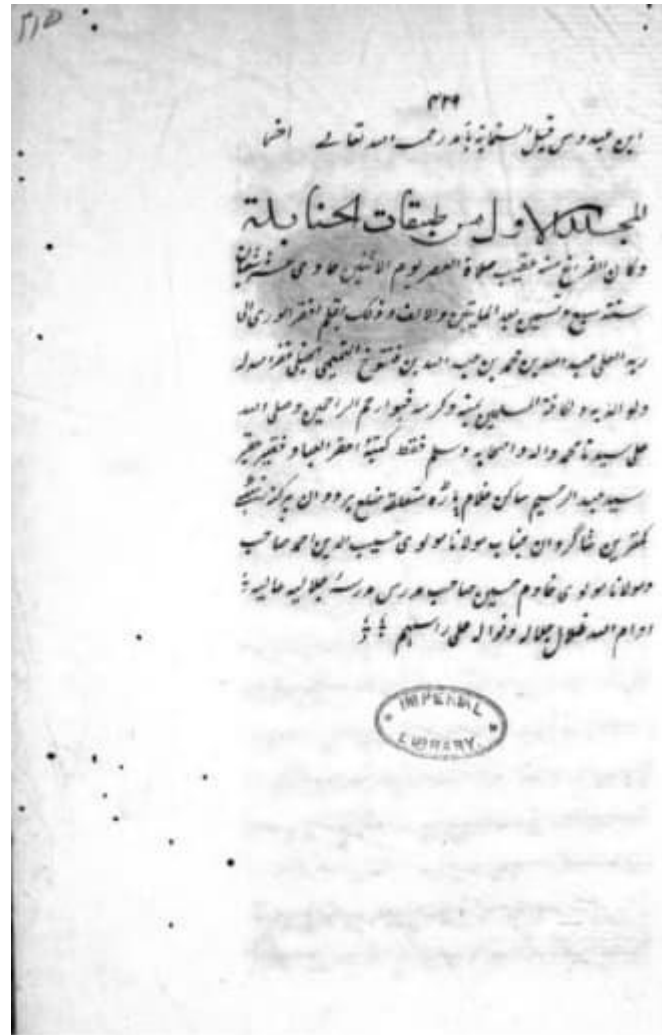 ٣١٥
٤٢٩
ابن عبدوس قبل الستماية بأمد رحمه الله تعالى
المجلد الاول من طبقات الحنابلة
وكان الفراغ منه عقيب صلاة العصر يوم الاثنين حادي عشر
سنة سبع وتسعين بعد المايتين والالف وذلك بقلم افقر الورى الى
ربه العلي عبد الله بن محمد بن عبد الله بن فنتوخ التميمي الحنبلي غفر الله له
ولوالديه ولكافة المسلمين بمنه وكرمه فهو ارحم الراحمين وصلى الله
على سيدنا محمد واله واصحابه وسلم فقط كتبه احقر العباد فقير حقير
سيد عبد الرحيم ساكن غلام پاڑه متعلقة ضلع بردوان
كمترين شاگردان جناب مولانا مولوى حسيب الدين احمد صاحب
ومولانا مولوى خادم حسين صاحب مدرس مدرسۀ جلاليه عاليه
ادام الله ظلال جلاله ونواله على راسهم
IMPERIAL
LIBRARY.